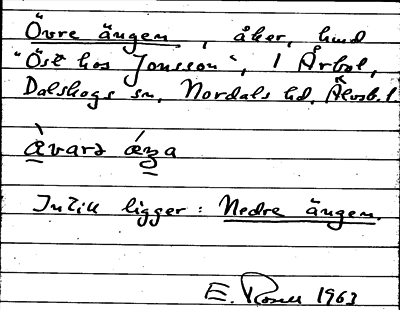 Övre ängen, åker, hmd
"Öst hos Jonsson", 1 Årbol,
Dalskogs sn, Nordals hd, Älvsb. l.
Intill ligger: Nedre ängen.
E. 1963